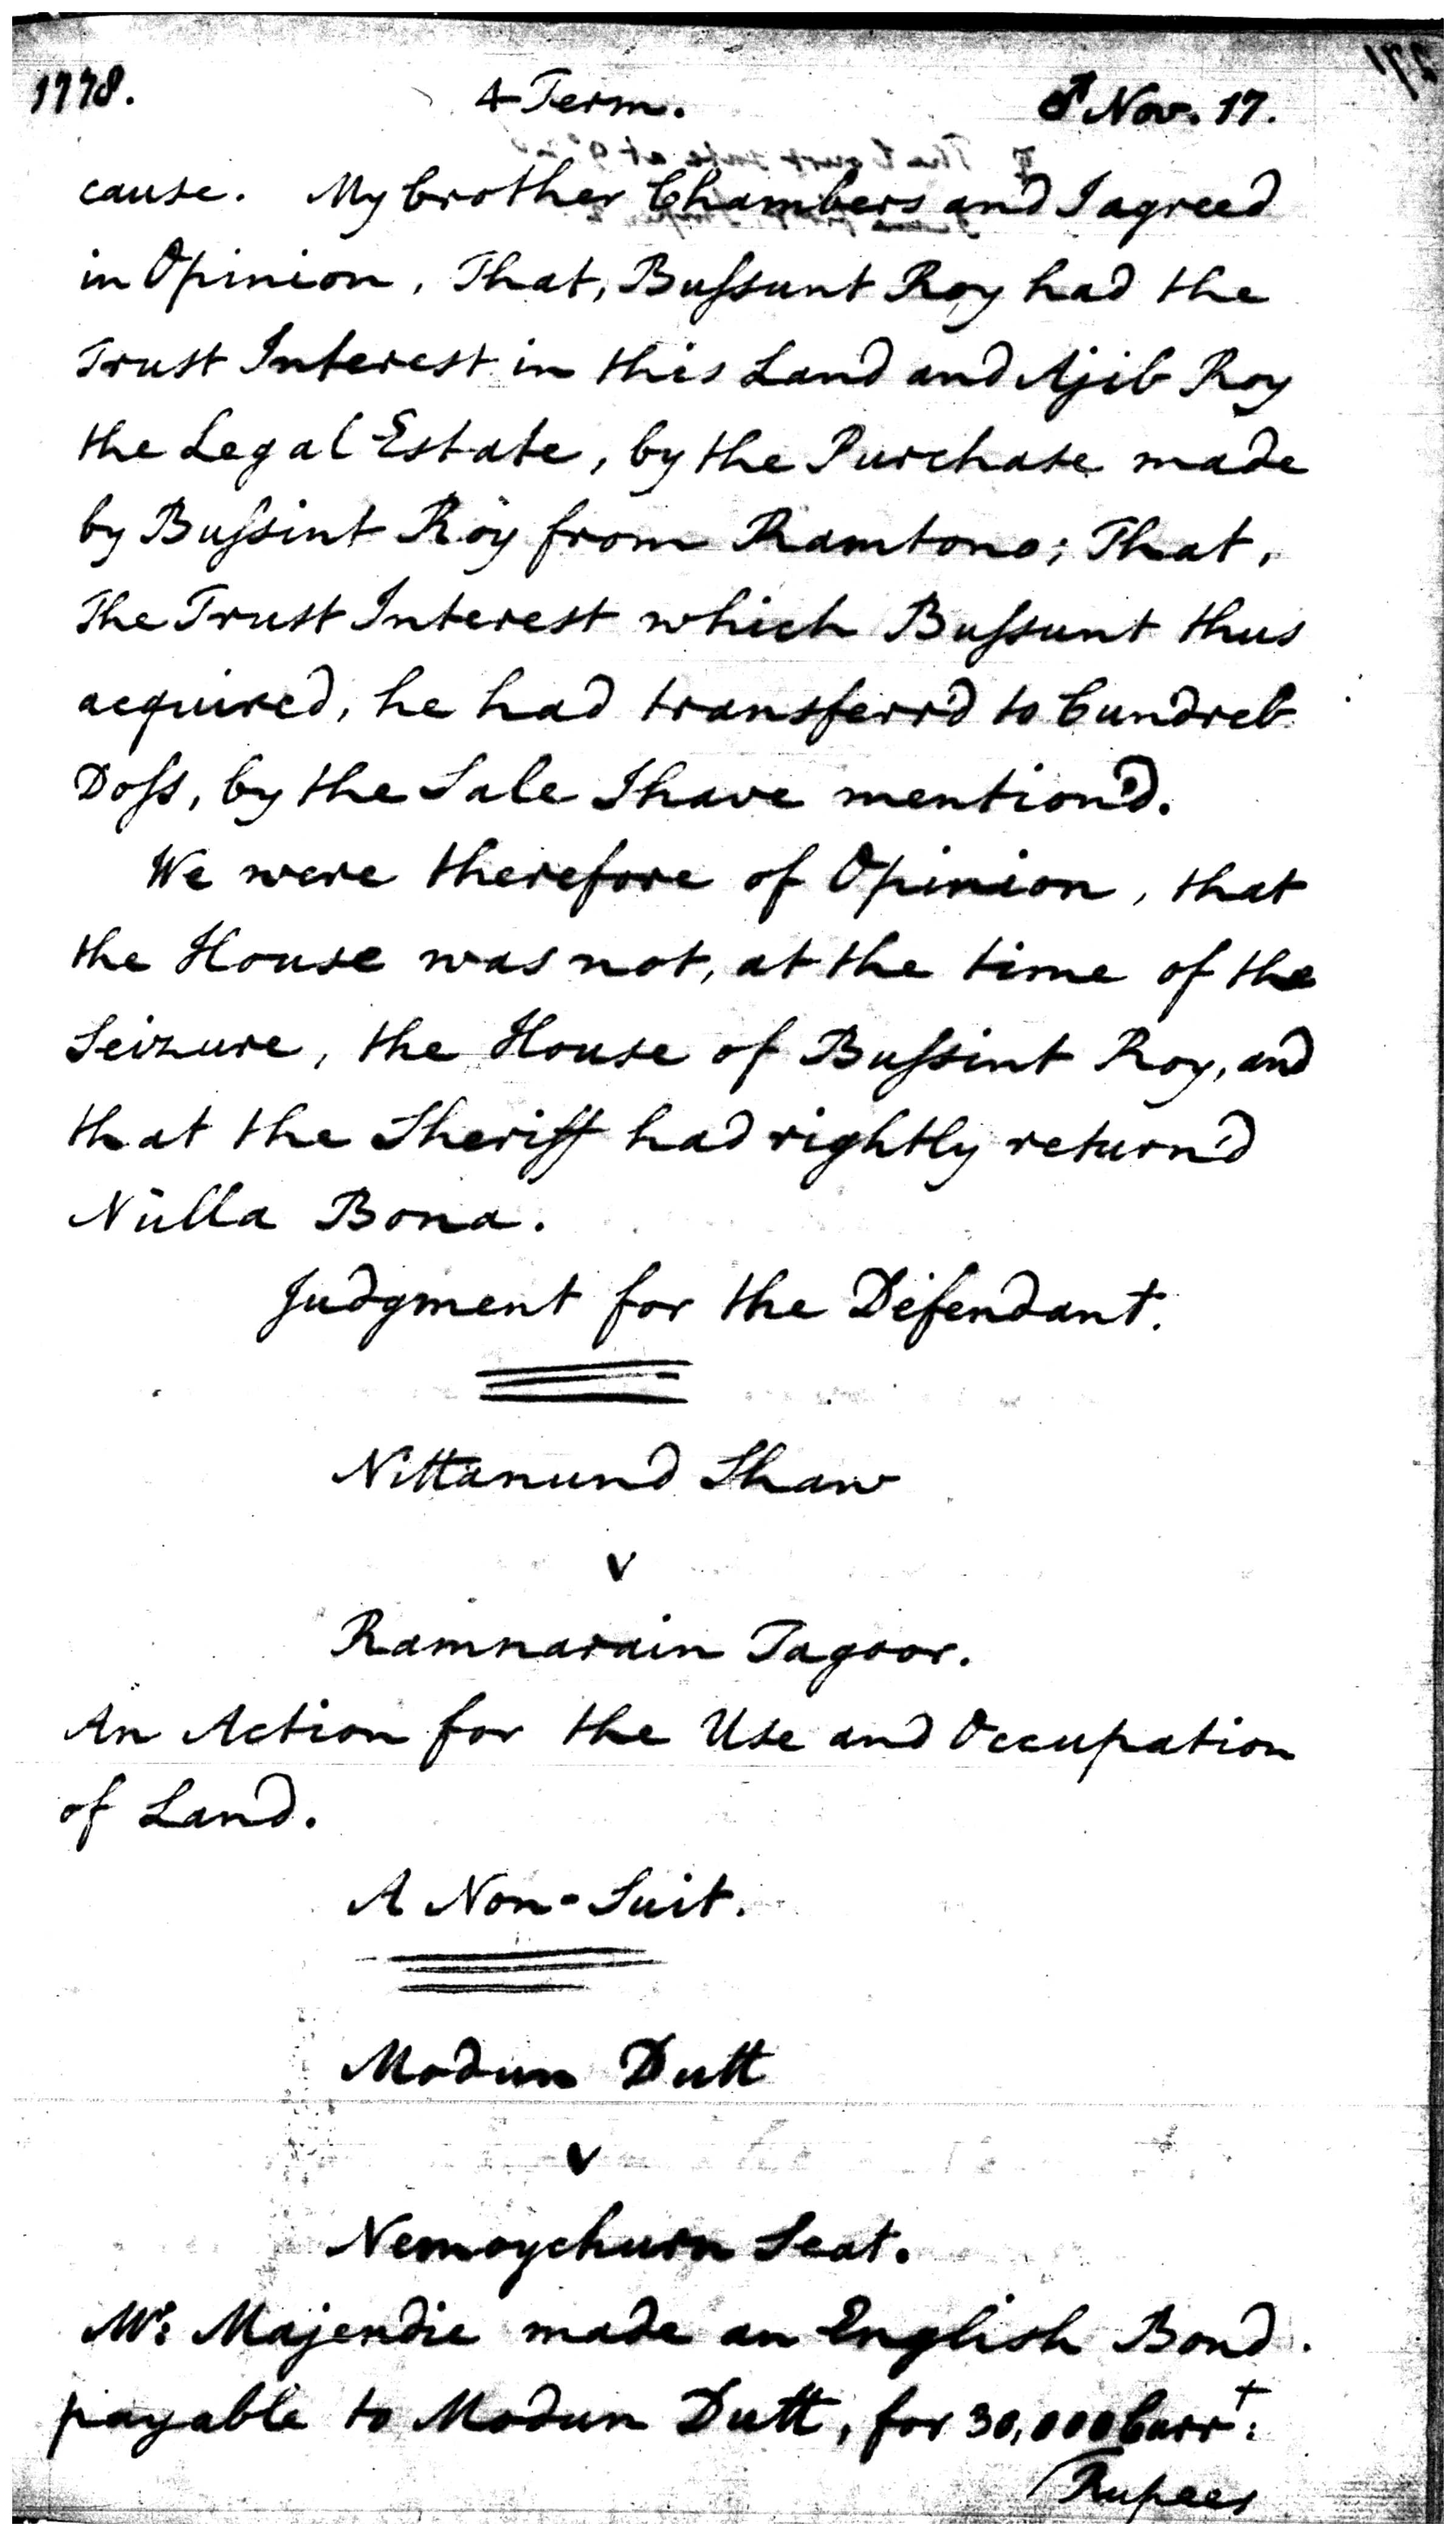 1778. 4 Term. ♂ Nov. 17.
cause. My brother Chambers and I agreed
in Opinion, That, Buſsunt Roy had the
Trust Interest in this Land and Ajib Roy
the Legal Estate, by the Purchase made
by Buſsint Roy from Ramtono; That,
The Trust Interest which Buſsunt thus
acquired, he had transferr'd to Cundreb
Doſs, by the Sale I have mention'd.
We were therefore of Opinion, that
the House was not, at the time of the
Seizure, the House of Buſsint Roy, and
that the Sheriff had rightly return'd
Nulla Bona.
Judgment for the Defendant.
Nittanund Shaw
v
Ramnarain Tagoor.
An Action for the Use and Occupation
of Land.
A Non-Suit.
Modun Dutt
v
Nemoychurn Seat.
Mr: Majendie made an English Bond
payable to Modun Dutt, for 30,000 Currt:
Rupees